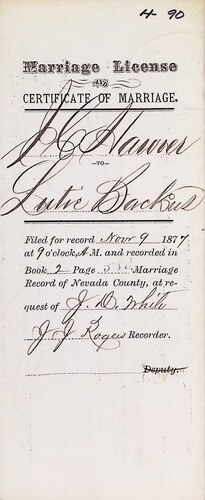 4 90
Marriage License
AND
CERTIFICATE OF MARRIAGE.
J C Hawver
—TO—
Lutie Backus
Filed for record Nov 9 1877
at 9 o'clock, A.M. and recorded in
Book 2 Page Marriage
Record of Nevada County, at re-
quest of J. D. White
J J Rogers Recorder.
Deputy.